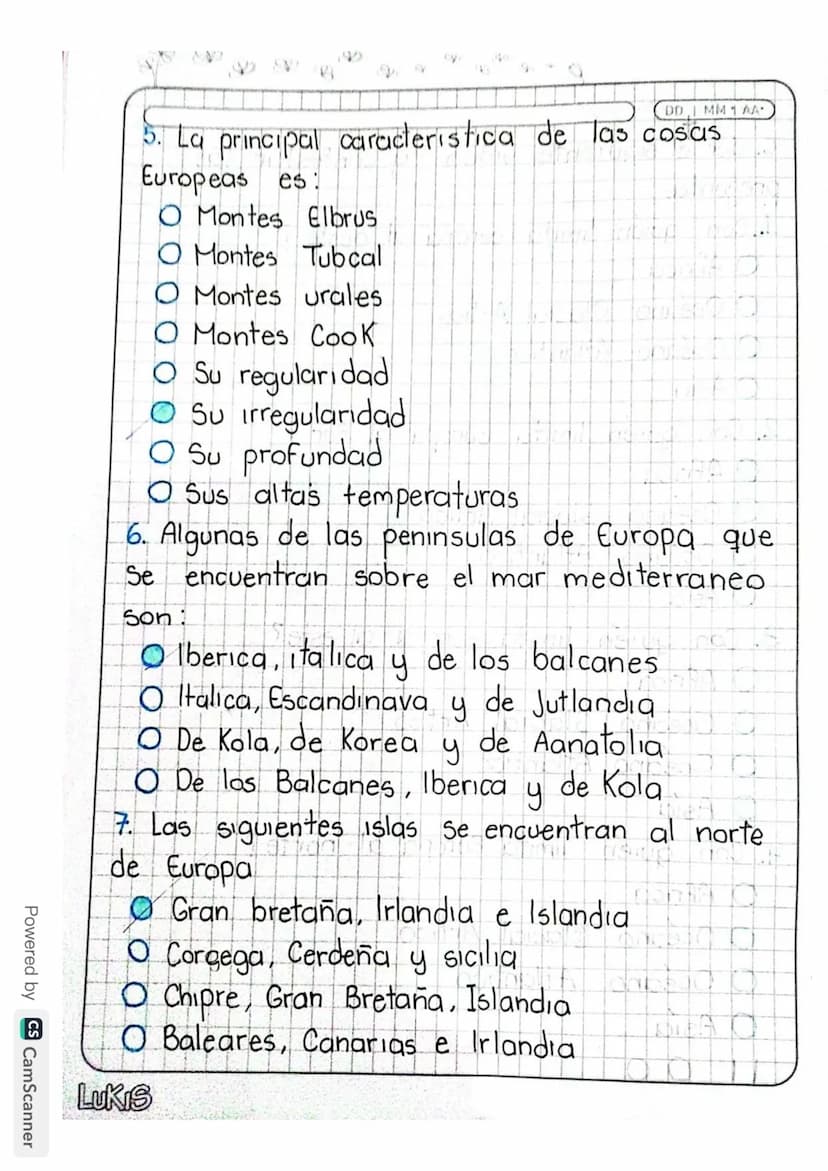 DD | MM 1 AA
5. La principal caracteristica de las cosas
Europeas es:
Montes Elbrus
Montes Tubcal
Montes urales
Montes Cook
Su regularidad
Su irregularidad
Su profundad
Sus altas temperaturas
6. Algunas de las peninsulas de Europa que
se encuentran sobre el mar mediterraneo
son:
Iberica, italica y de los balcanes
Italica, Escandinava y de Jutlandia
De Kola, de Korea y de Aanatolia
De los Balcanes, Iberica y de Kola
7. Las siguientes islas se encuentran al norte
de Europa
Gran bretaña, Irlandia e Islandia
Corçega, Cerdeña y sicilia
Chipre, Gran Bretaña, Islandia
Baleares, Canarias e Irlandia
LUKIS
Powered by CS CamScanner